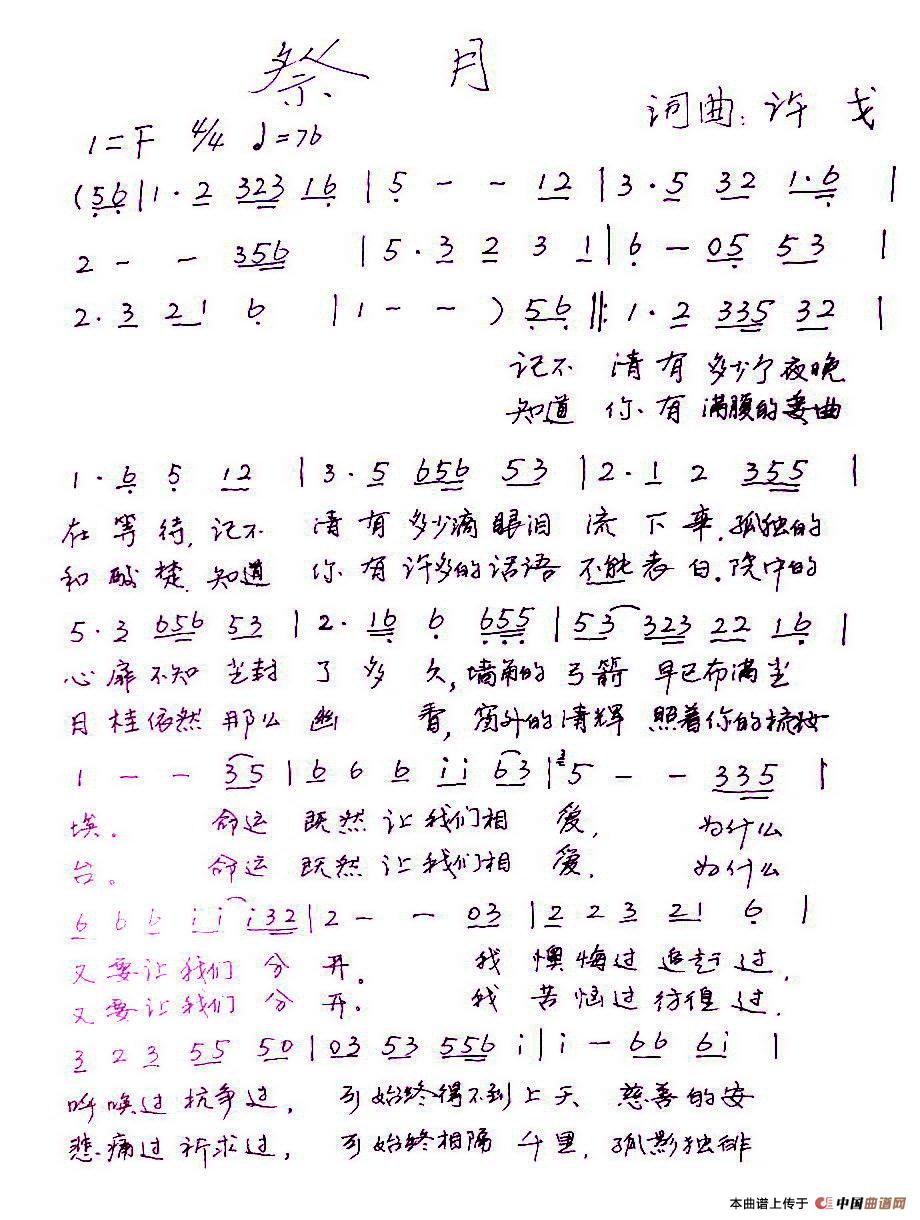 祭 月
词曲: 许 戈
1=F 4/4 ♩=76
(56|1·2 323 16|5 - - 12|3·5 32 1·6|
2 - - 356 |5·3 2 3 1|6 - 05 53|
2·3 21 6 |1 - - ) 56‖:1·2 335 32|
记不 清有多少个夜晚
知道 你有满腹的委曲
1·6 5 12 |3·5 656 53|2·1 2 355|
在等待,记不 清有多少滴眼泪 流下来.孤独的
和酸楚.知道 你有许多的话语 不能表白.院中的
5·3 656 53|2·16 6 655|53 323 22 16|
心扉不知尘封 了多久,墙角的弓箭 早已布满尘
月桂依然那么幽 香,窗外的清辉 照着你的梳妆
1 - - 35|6 6 6 ii 63|5 - - 335|
埃。 命运 既然让我们相 爱, 为什么
台。 命运 既然让我们相 爱, 为什么
6 6 6 i i i32|2 - - 03|2 2 3 21 6|
又要让我们 分 开。 我 懊悔过追赶过,
又要让我们 分 开。 我 苦恼过彷徨过,
3 2 3 55 50|03 53 556 i|i - 66 6i|
呼唤过抗争过, 可始终得不到上天 慈善的安
悲痛过祈求过, 可始终相隔千里,孤影独徘
本曲谱上传于 中国曲谱网